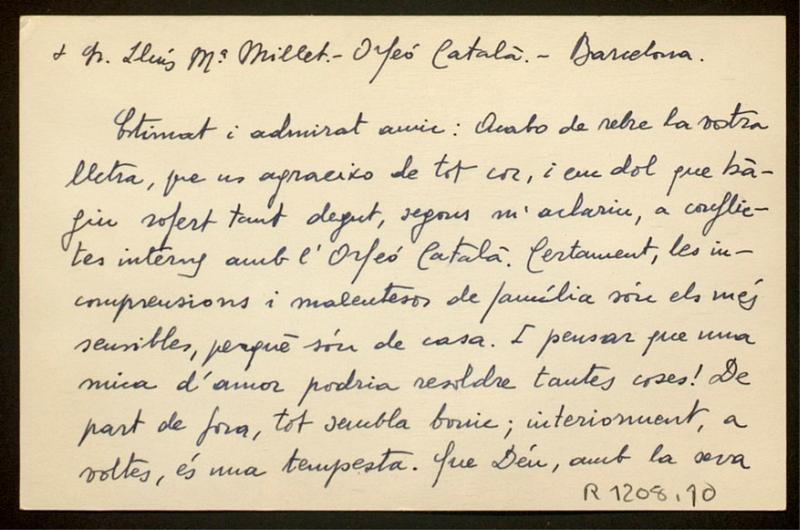 + Sr. Lluís Mª Millet.- Orfeó Català.- Barcelona.
Estimat i admirat amic: Acabo de rebre la vostra
lletra, que us agraeixo de tot cor, i em dol que hà-
giu sofert tant degut, segons m'aclariu, a conflic-
tes interns amb l'Orfeó Català. Certament, les in-
comprensions i malentesos de família són els més
sensibles, perquè són de casa. I pensar que una
mica d'amor podria resoldre tantes coses! De
part de fora, tot sembla bonic; interiorment, a
voltes, és una tempesta. Que Déu, amb la seva
R 1208.10